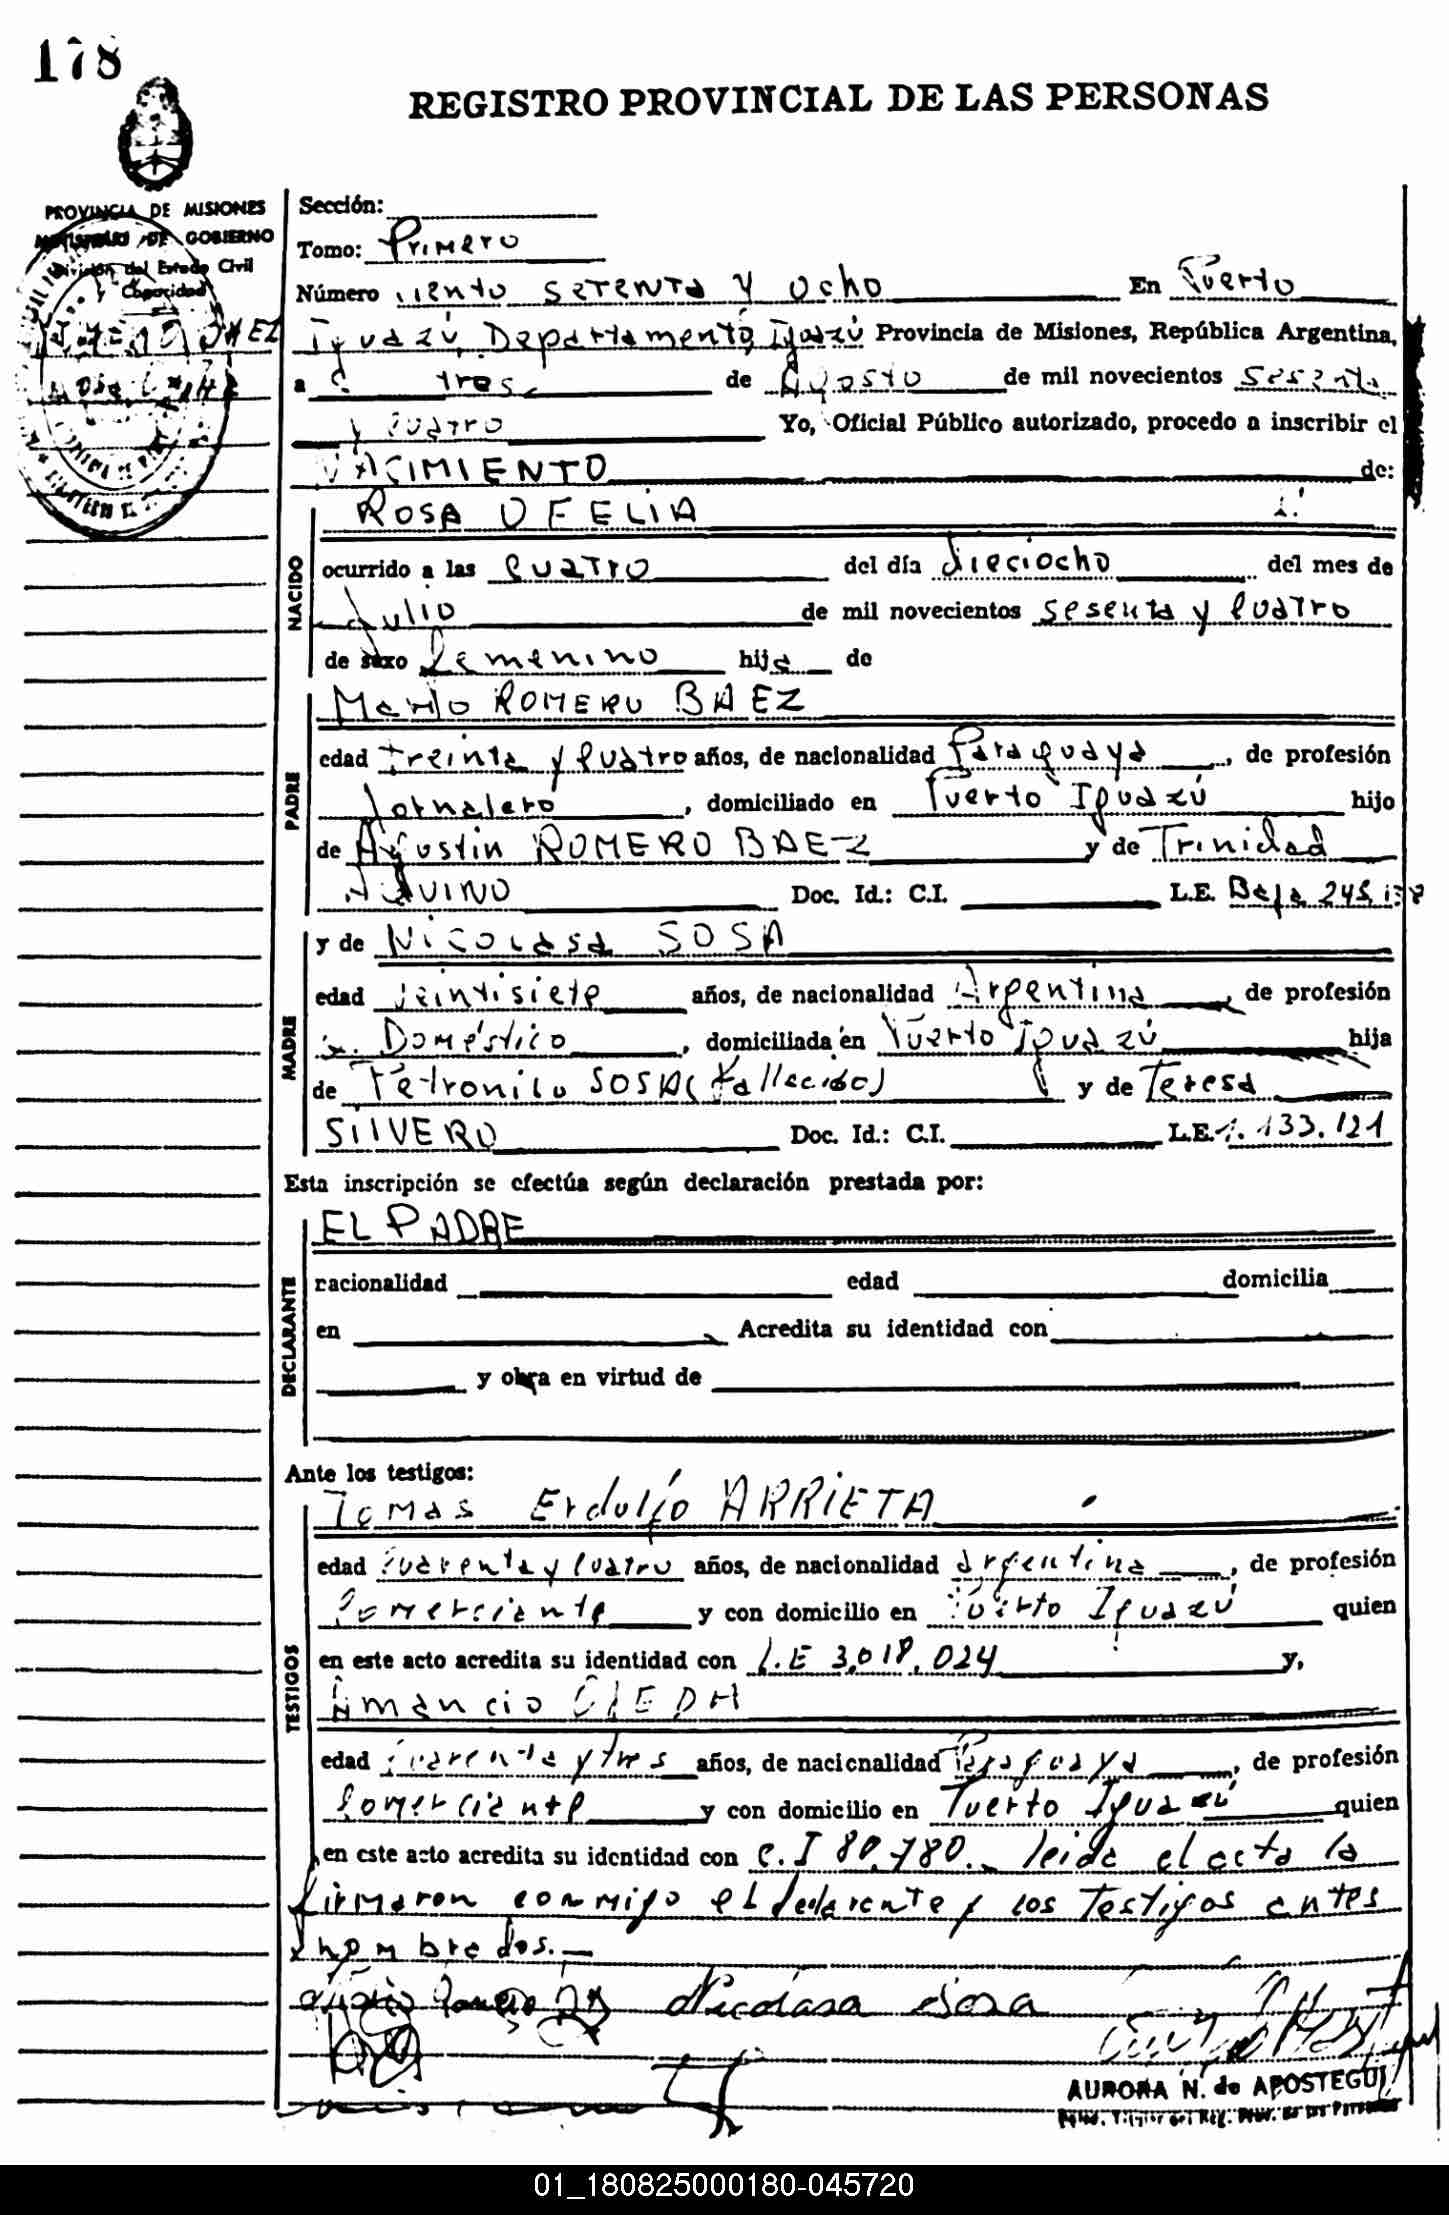 178
REGISTRO PROVINCIAL DE LAS PERSONAS
PROVINCIA DE MISIONES
MINISTERIO DE GOBIERNO
División del Estado Civil
y Capacidad
Sección:
Tomo: Primero
Número ciento setenta y ocho En Puerto
Iguazú, Departamento Iguazú Provincia de Misiones, República Argentina,
a tres de Agosto de mil novecientos sesenta
y cuatro Yo, Oficial Público autorizado, procedo a inscribir el
NACIMIENTO de:
ROSA OFELIA
NACIDO
ocurrido a las cuatro del día dieciocho del mes de
Julio de mil novecientos sesenta y cuatro
de sexo femenino hija de
ROMERO BAEZ
PADRE
edad treinta y cuatro años, de nacionalidad Paraguaya, de profesión
Jornalero, domiciliado en Puerto Iguazú hijo
de Agustin ROMERO BAEZ y de Trinidad
AQUINO Doc. Id.: C.I. L.E. Baja
y de Nicolasa SOSA
MADRE
edad veintisiete años, de nacionalidad Argentina, de profesión
Doméstico, domiciliada en Puerto Iguazú hija
de Petronilo SOSA (fallecido) y de Teresa
SILVERO Doc. Id.: C.I. L.E. 1.133.121
Esta inscripción se efectúa según declaración prestada por:
EL PADRE
DECLARANTE
nacionalidad edad domicilia
en Acredita su identidad con
y obra en virtud de
Ante los testigos:
Tomas Erdulfo ARRIETA
TESTIGOS
edad cuarenta y cuatro años, de nacionalidad argentina, de profesión
comerciante y con domicilio en Puerto Iguazú quien
en este acto acredita su identidad con L.E 3.018.024 y,
Amancio
edad cuarenta y tres años, de nacionalidad Paraguaya, de profesión
comerciante y con domicilio en Puerto Iguazú quien
en este acto acredita su identidad con C.I 80.780. leida el acta la
firmaron conmigo el declarante y los testigos antes
nombrados.—
Nicolasa Sosa
AURORA N. de APOSTEGUI
01_180825000180-045720